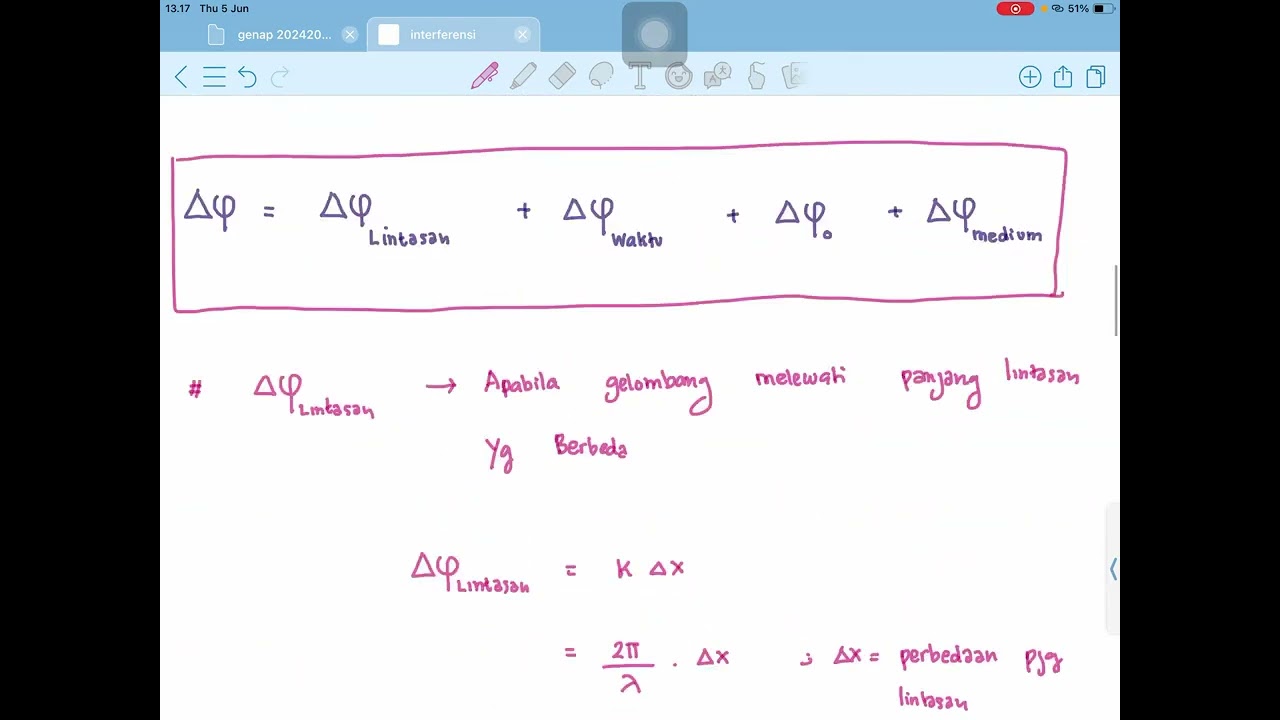 13.17 Thu 5 Jun
51%
genap 202420...
interferensi
Δφ = Δφ Lintasan + Δφ Waktu + Δφ₀ + Δφ medium
# Δφ Lintasan → Apabila gelombang melewati panjang lintasan
Yg Berbeda
Δφ Lintasan = K Δx
= 2π/λ . Δx ; Δx = perbedaan pjg
lintasan